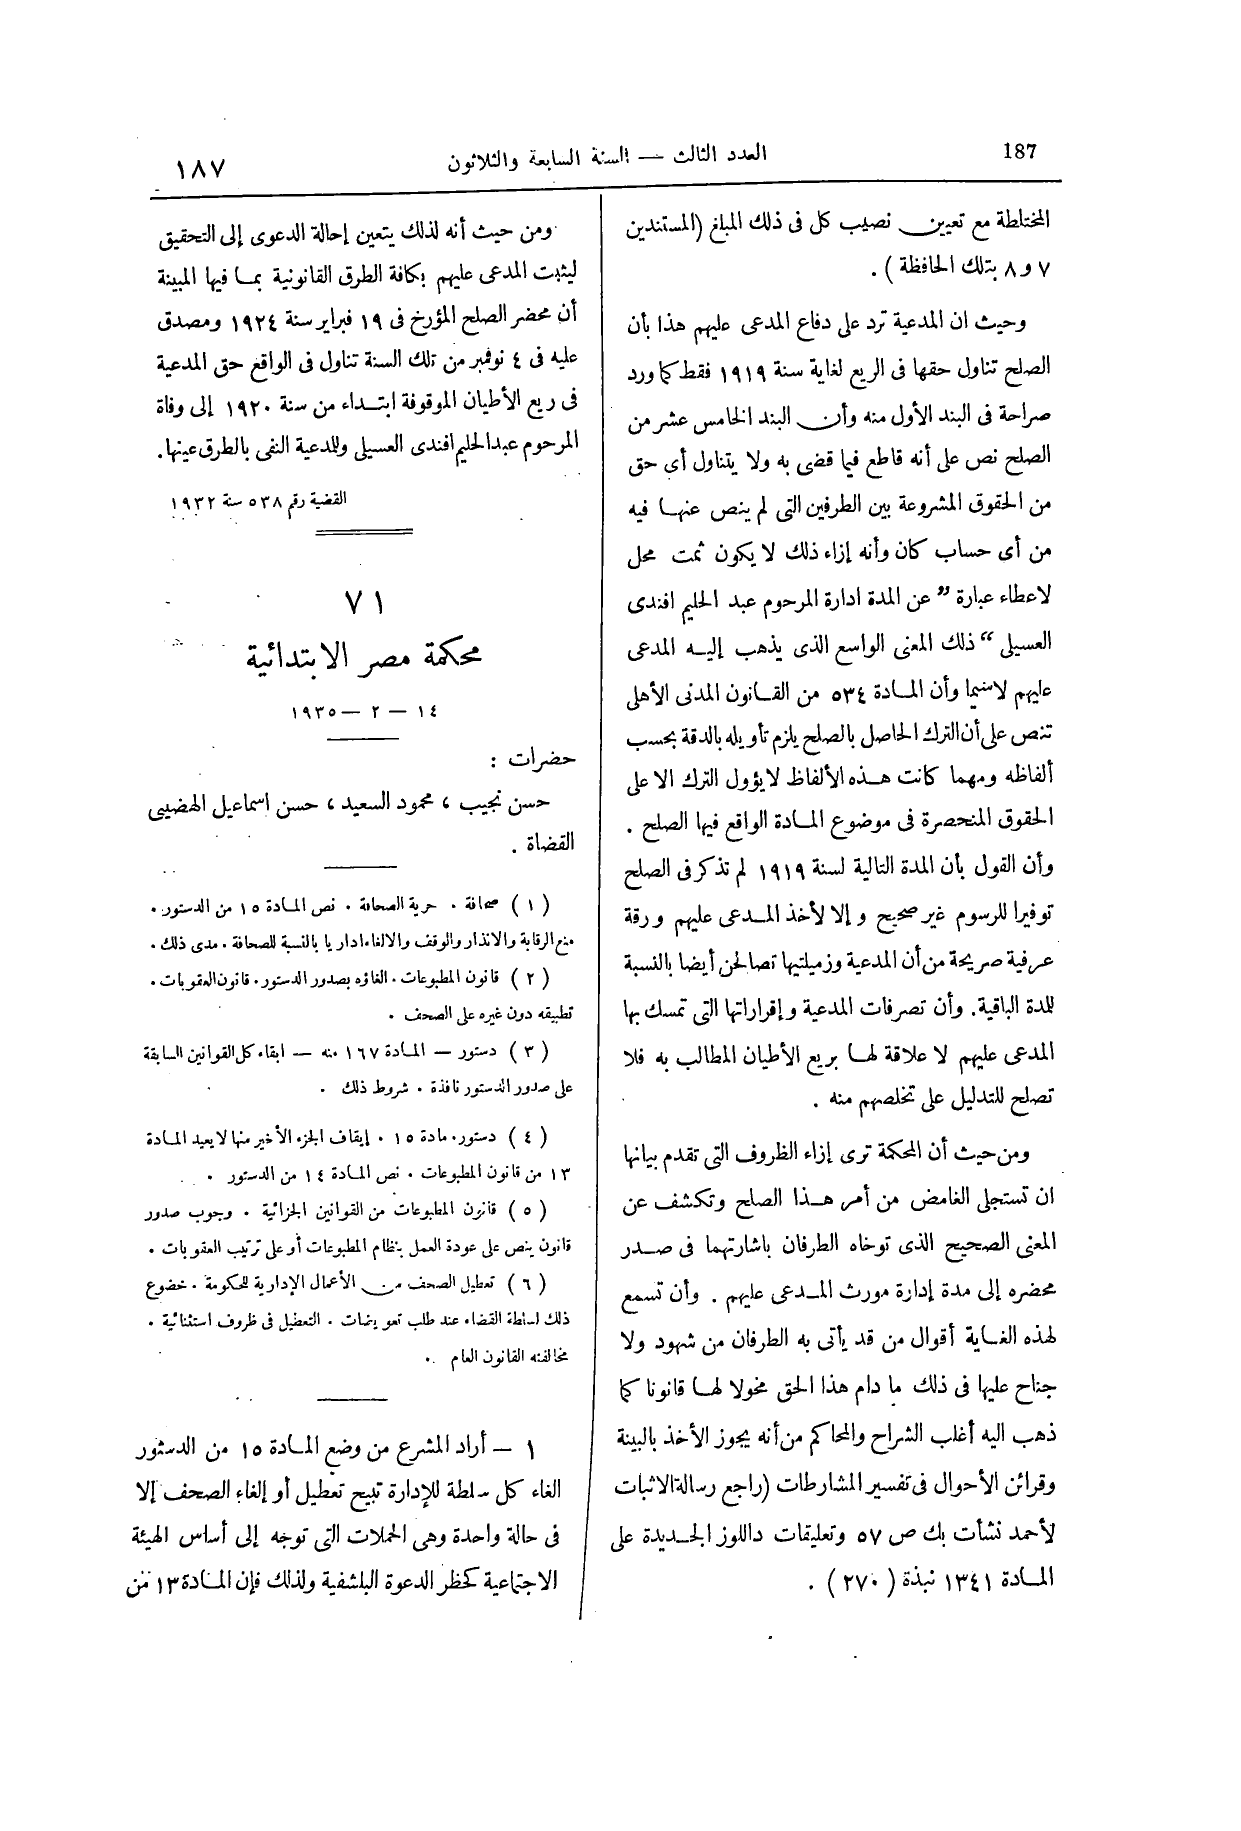 187
العدد الثالث — السنة السابعة والثلاثون
١٨٧
المختلطة مع تعيين نصيب كل فى ذلك المبلغ (المستندين
٧ و٨ بتلك الحافظة ) .
وحيث ان المدعية ترد على دفاع المدعى عليهم هذا بأن
الصلح تناول حقها فى الريع لغاية سنة ١٩١٩ فقط كما ورد
صراحة فى البند الأول منه وأن البند الخامس عشر من
الصلح نص على أنه قاطع فيما قضى به ولا يتناول أى حق
من الحقوق المشروعة بين الطرفين التى لم ينص عنها فيه
من أى حساب كان وأنه إزاء ذلك لا يكون ثمت محل
لاعطاء عبارة ” عن المدة ادارة المرحوم عبد الحليم افندى
العسيلى “ ذلك المعنى الواسع الذى يذهب إليه المدعى
عليهم لاسيما وأن المادة ٥٣٤ من القانون المدنى الأهلى
تنص على أن الترك الحاصل بالصلح يلزم تأويله بالدقة بحسب
ألفاظه ومهما كانت هذه الألفاظ لا يؤول الترك الا على
الحقوق المنحصرة فى موضوع المادة الواقع فيها الصلح .
وأن القول بأن المدة التالية لسنة ١٩١٩ لم تذكر فى الصلح
توفيرا للرسوم غير صحيح و إلا لأخذ المدعى عليهم ورقة
عرفية صريحة من أن المدعية وزميلتيها تصالحن أيضا بالنسبة
للمدة الباقية. وأن تصرفات المدعية وإقراراتها التى تمسك بها
المدعى عليهم لا علاقة لها بريع الأطيان المطالب به فلا
تصلح للتدليل على تخلصهم منه .
ومن حيث أن المحكمة ترى إزاء الظروف التى تقدم بيانها
ان تستجلى الغامض من أمر هذا الصلح وتكشف عن
المعنى الصحيح الذى توخاه الطرفان باشارتهما فى صدر
محضره إلى مدة إدارة مورث المدعى عليهم . وأن تسمع
لهذه الغاية أقوال من قد يأتى به الطرفان من شهود ولا
جناح عليها فى ذلك ما دام هذا الحق مخولا لها قانونا كما
ذهب اليه أغلب الشراح والمحاكم من أنه يجوز الأخذ بالبينة
وقرائن الأحوال فى تفسير المشارطات (راجع رسالة الاثبات
لأحمد نشأت بك ص ٥٧ وتعليقات داللوز الجديدة على
المادة ١٣٤١ نبذة ( ٢٧٠ ) .
ومن حيث أنه لذلك يتعين إحالة الدعوى إلى التحقيق
ليثبت المدعى عليهم بكافة الطرق القانونية بما فيها البينة
أن محضر الصلح المؤرخ فى ١٩ فبراير سنة ١٩٢٤ ومصدق
عليه فى ٤ نوفمبر من تلك السنة تناول فى الواقع حق المدعية
فى ريع الأطيان الموقوفة ابتداء من سنة ١٩٢٠ إلى وفاة
المرحوم عبدالحليم افندى العسيلى وللمدعية النفى بالطرق عينها.
القضية رقم ٥٣٨ سنة ١٩٣٢
٧١
محكمة مصر الابتدائية
١٤ — ٢ — ١٩٣٥
حضرات :
حسن نجيب ، محمود السعيد ، حسن اسماعيل الهضيبى
القضاة .
( ١ ) صحافة . حرية الصحافة . نص المادة ١٥ من الدستور .
منع الرقابة والانذار والوقف والالغاء اداريا بالنسبة للصحافة . مدى ذلك .
( ٢ ) قانون المطبوعات . الغاؤه بصدور الدستور . قانون العقوبات .
تطبيقه دون غيره على الصحف .
( ٣ ) دستور — المادة ١٦٧ منه — ابقاء كل القوانين السابقة
على صدور الدستور نافذة . شروط ذلك .
( ٤ ) دستور . مادة ١٥ . إيقاف الجزء الأخير منها لا يعيد المادة
١٣ من قانون المطبوعات . نص المادة ١٤ من الدستور .
( ٥ ) قانون المطبوعات من القوانين الجزائية . وجوب صدور
قانون ينص على عودة العمل بنظام المطبوعات أو على ترتيب العقوبات .
( ٦ ) تعطيل الصحف من الأعمال الإدارية للحكومة . خضوع
ذلك لسلطة القضاء عند طلب تعويضات . التعطيل فى ظروف استثنائية .
مخالفته القانون العام .
١ — أراد المشرع من وضع المادة ١٥ من الدستور
الغاء كل سلطة للإدارة تبيح تعطيل أو إلغاء الصحف إلا
فى حالة واحدة وهى الحملات التى توجه إلى أساس الهيئة
الاجتماعية كحظر الدعوة البلشفية ولذلك فإن المادة ١٣ من